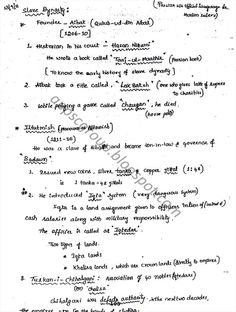 Slave Dynasty:
(Persian was official language for
Muslim rulers)
* Founder - Aibak (Qutub-ud-Din Aibak)
[1206-10]
1. Historian in his court - Hasan Nizami
He wrote a book called "Taj-ul-Maathir" (Persian book)
[To know the early history of slave dynasty]
2. Aibak took a title called, "Lak Batsh" (one who gives lakhs of rupees
to charities)
3. While playing a game called "Chaugan", he died.
(horse polo)
* Iltutmish
(1211-36)
He was a slave of Aibak and became son-in-law & governor of
Badaun
1. Issued new coins, silver tanka & copper Jital (1:48)
1 tanka = 48 jitals
2. He introduced "Iqta" system (very dangerous system)
Iqta is a land assignment given to officers in lieu of
cash salaries along with military responsibility.
The officer is called as "Iqtadar".
Two types of lands
* Iqta lands
* Khalisa lands, which are crown lands (directly to emperor)
3. Turkan-i-Chihalgani: Association of 40 nobles/officers
(or) Chalisa
Chihalgani was defacto authority. In the next two decades,